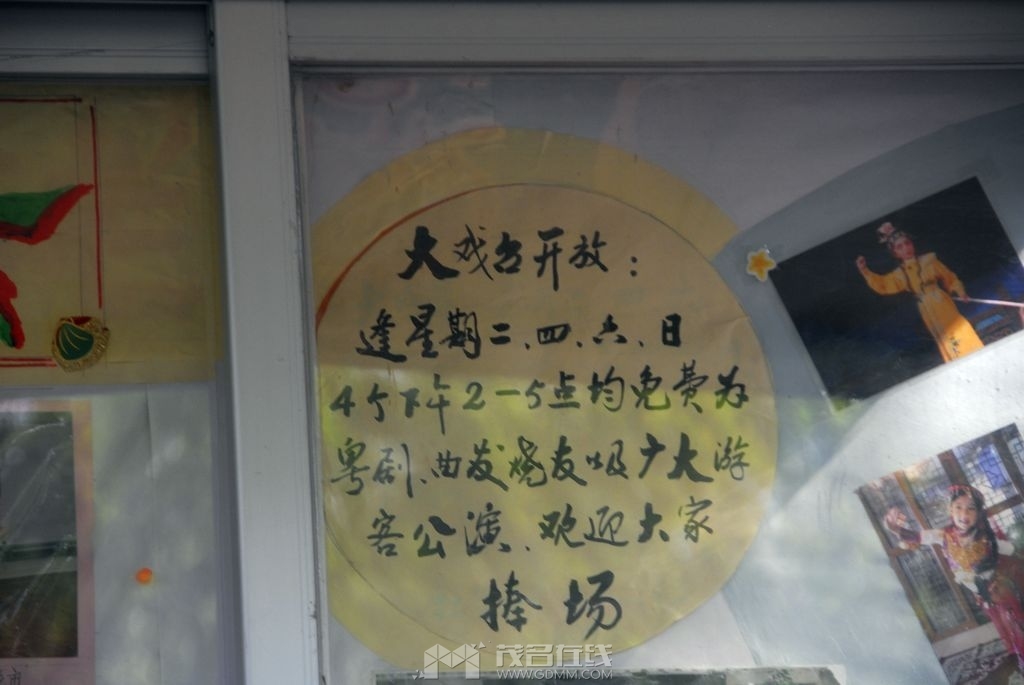 大戏台开放：
逢星期二、四、六、日
4个下午2—5点均免费为
粤剧、曲发烧友吸广大游
客公演、欢迎大家
捧场
茂名在线
WWW.GDMM.COM